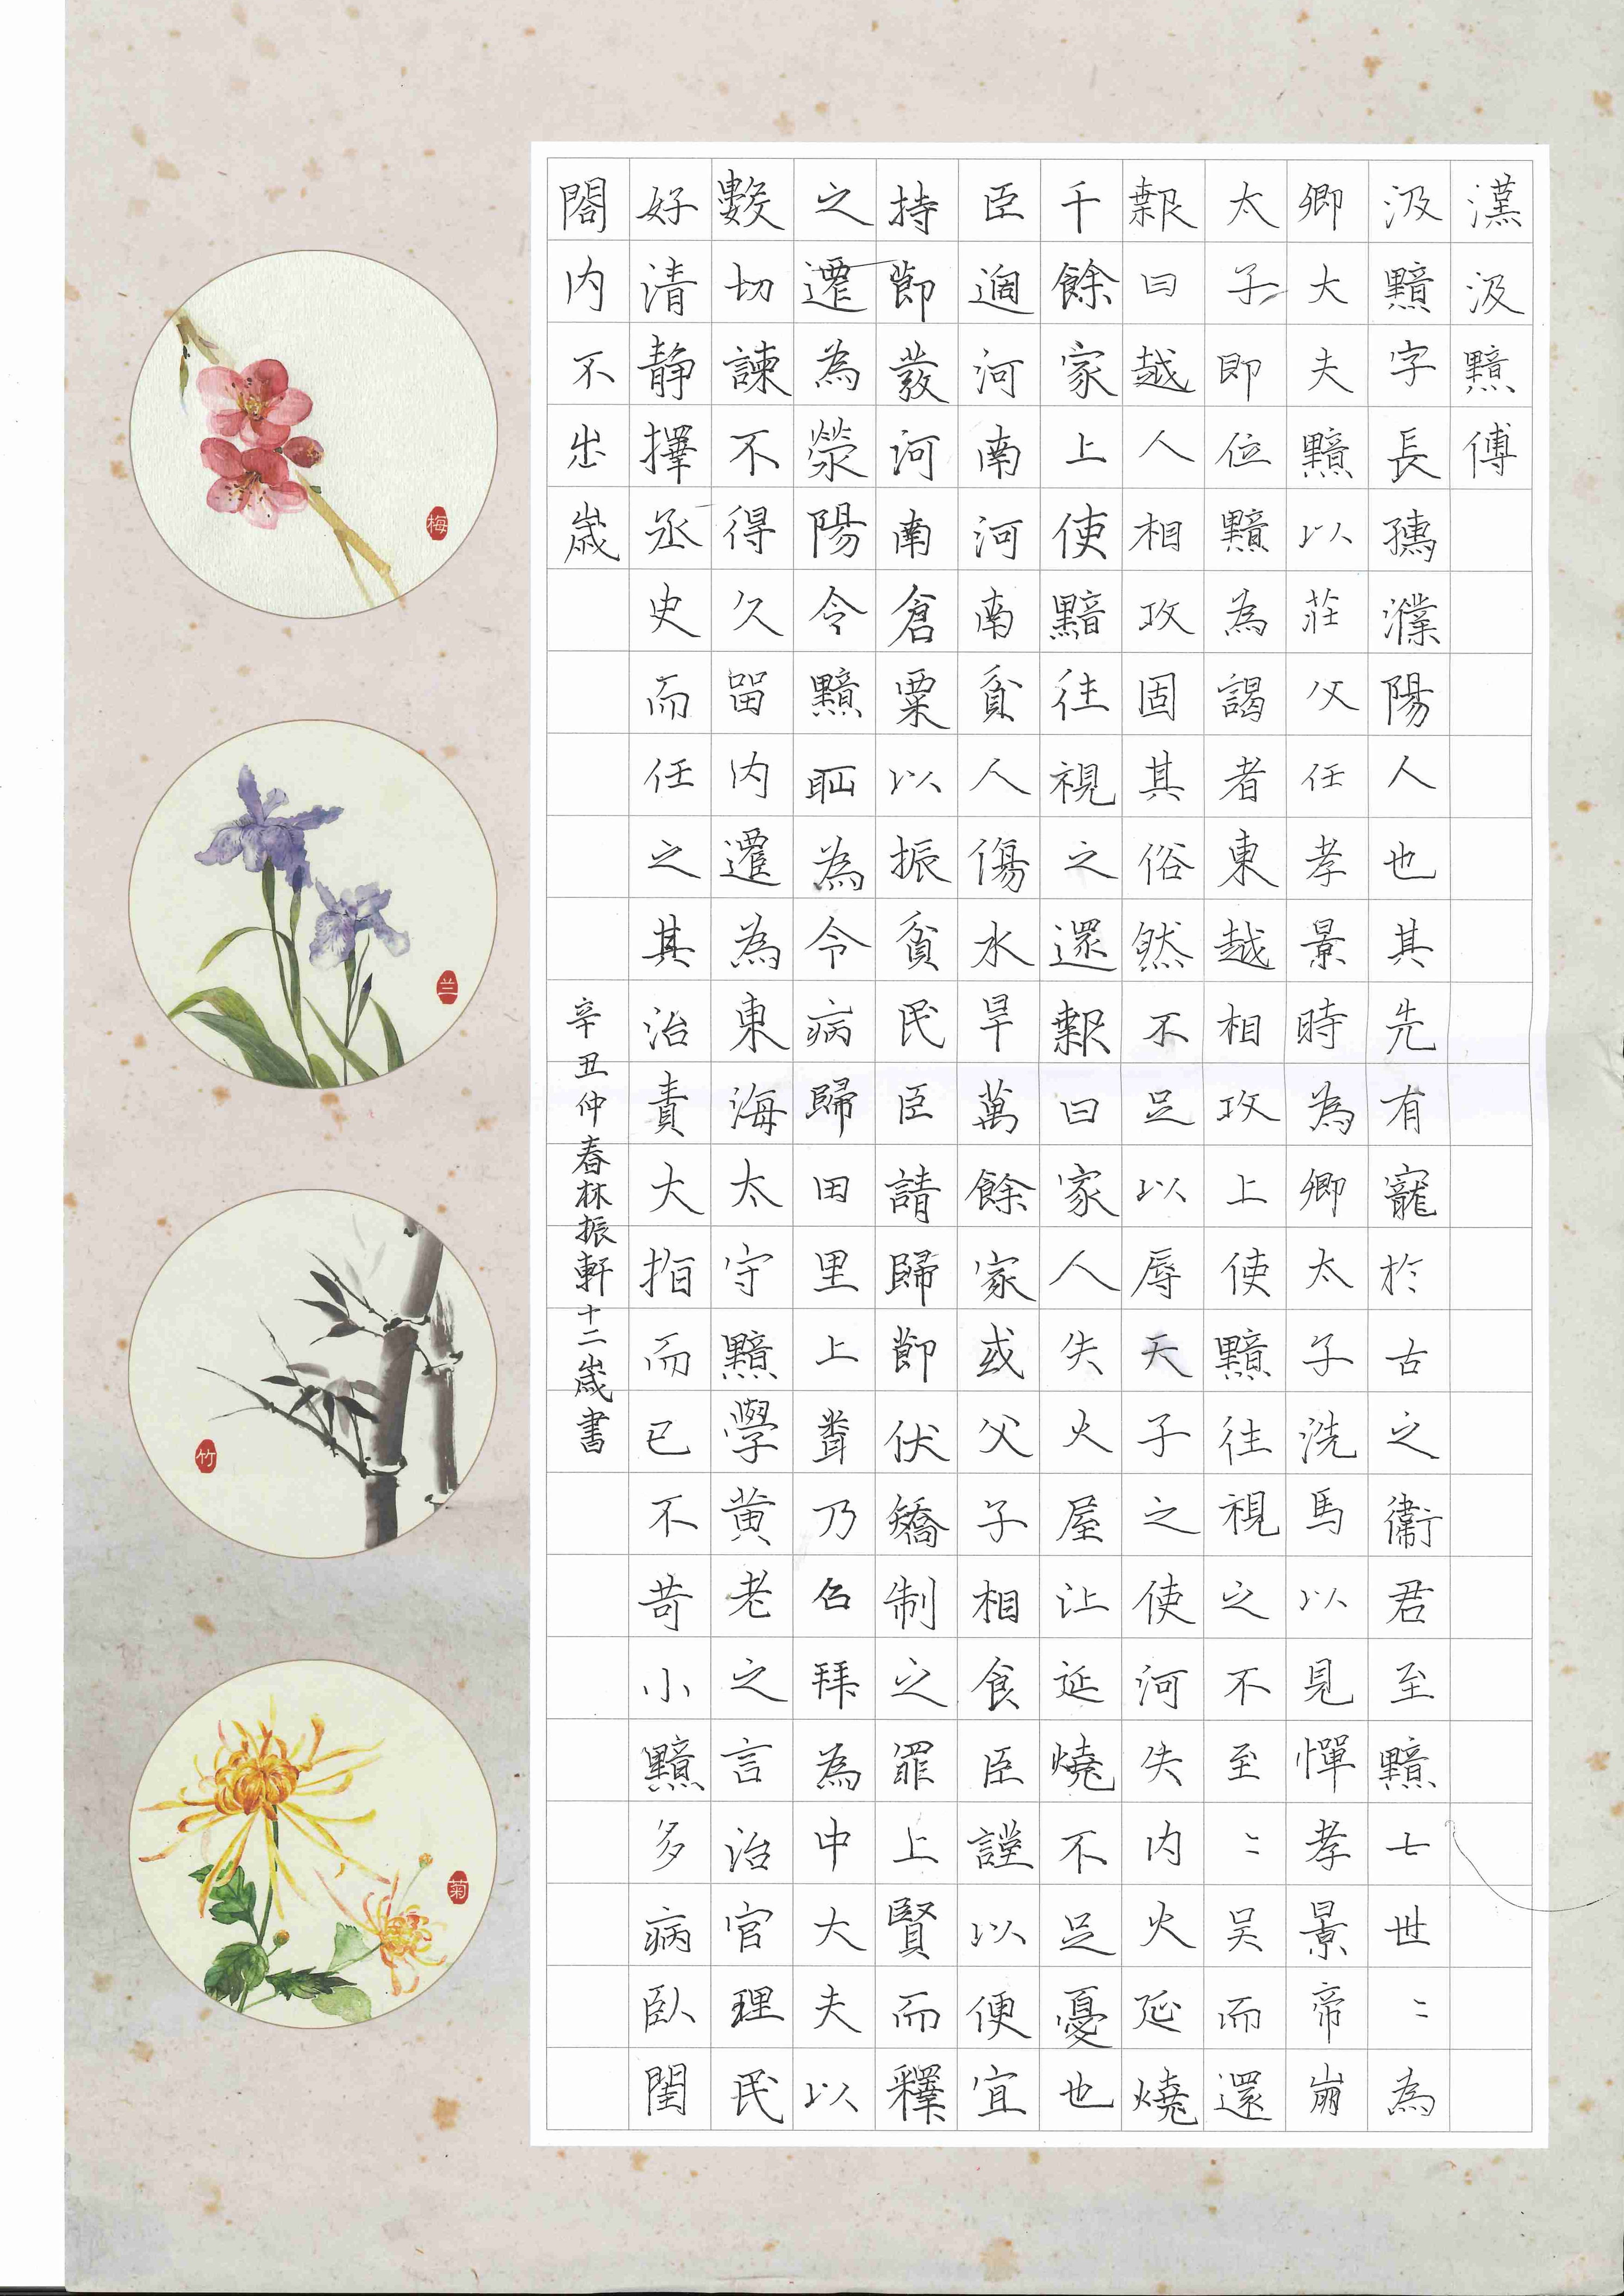 漢汲黯傳
汲黯字長孺濮陽人也其先有寵於古之衞君至黯七世〻為
卿大夫黯以莊父任孝景時為卿太子洗馬以見憚孝景帝崩
太子即位黯為謁者東越相攻上使黯往視之不至〻吳而還
報曰越人相攻固其俗然不足以辱天子之使河失内火延燒
千餘家上使黯往視之還報曰家人失火屋比延燒不足憂也
臣過河南河南貧人傷水旱萬餘家或父子相食臣謹以便宜
持節發河南倉粟以振貧民臣請歸節伏矯制之罪上賢而釋
之遷為滎陽令黯恥為令病歸田里上聞乃召拜為中大夫以
數切諫不得久留内遷為東海太守黯學黄老之言治官理民
好清静擇丞史而任之其治責大指而已不苛小黯多病臥閨
閤内不出歲
辛丑仲春林振軒十二歲書
梅
兰
竹
菊